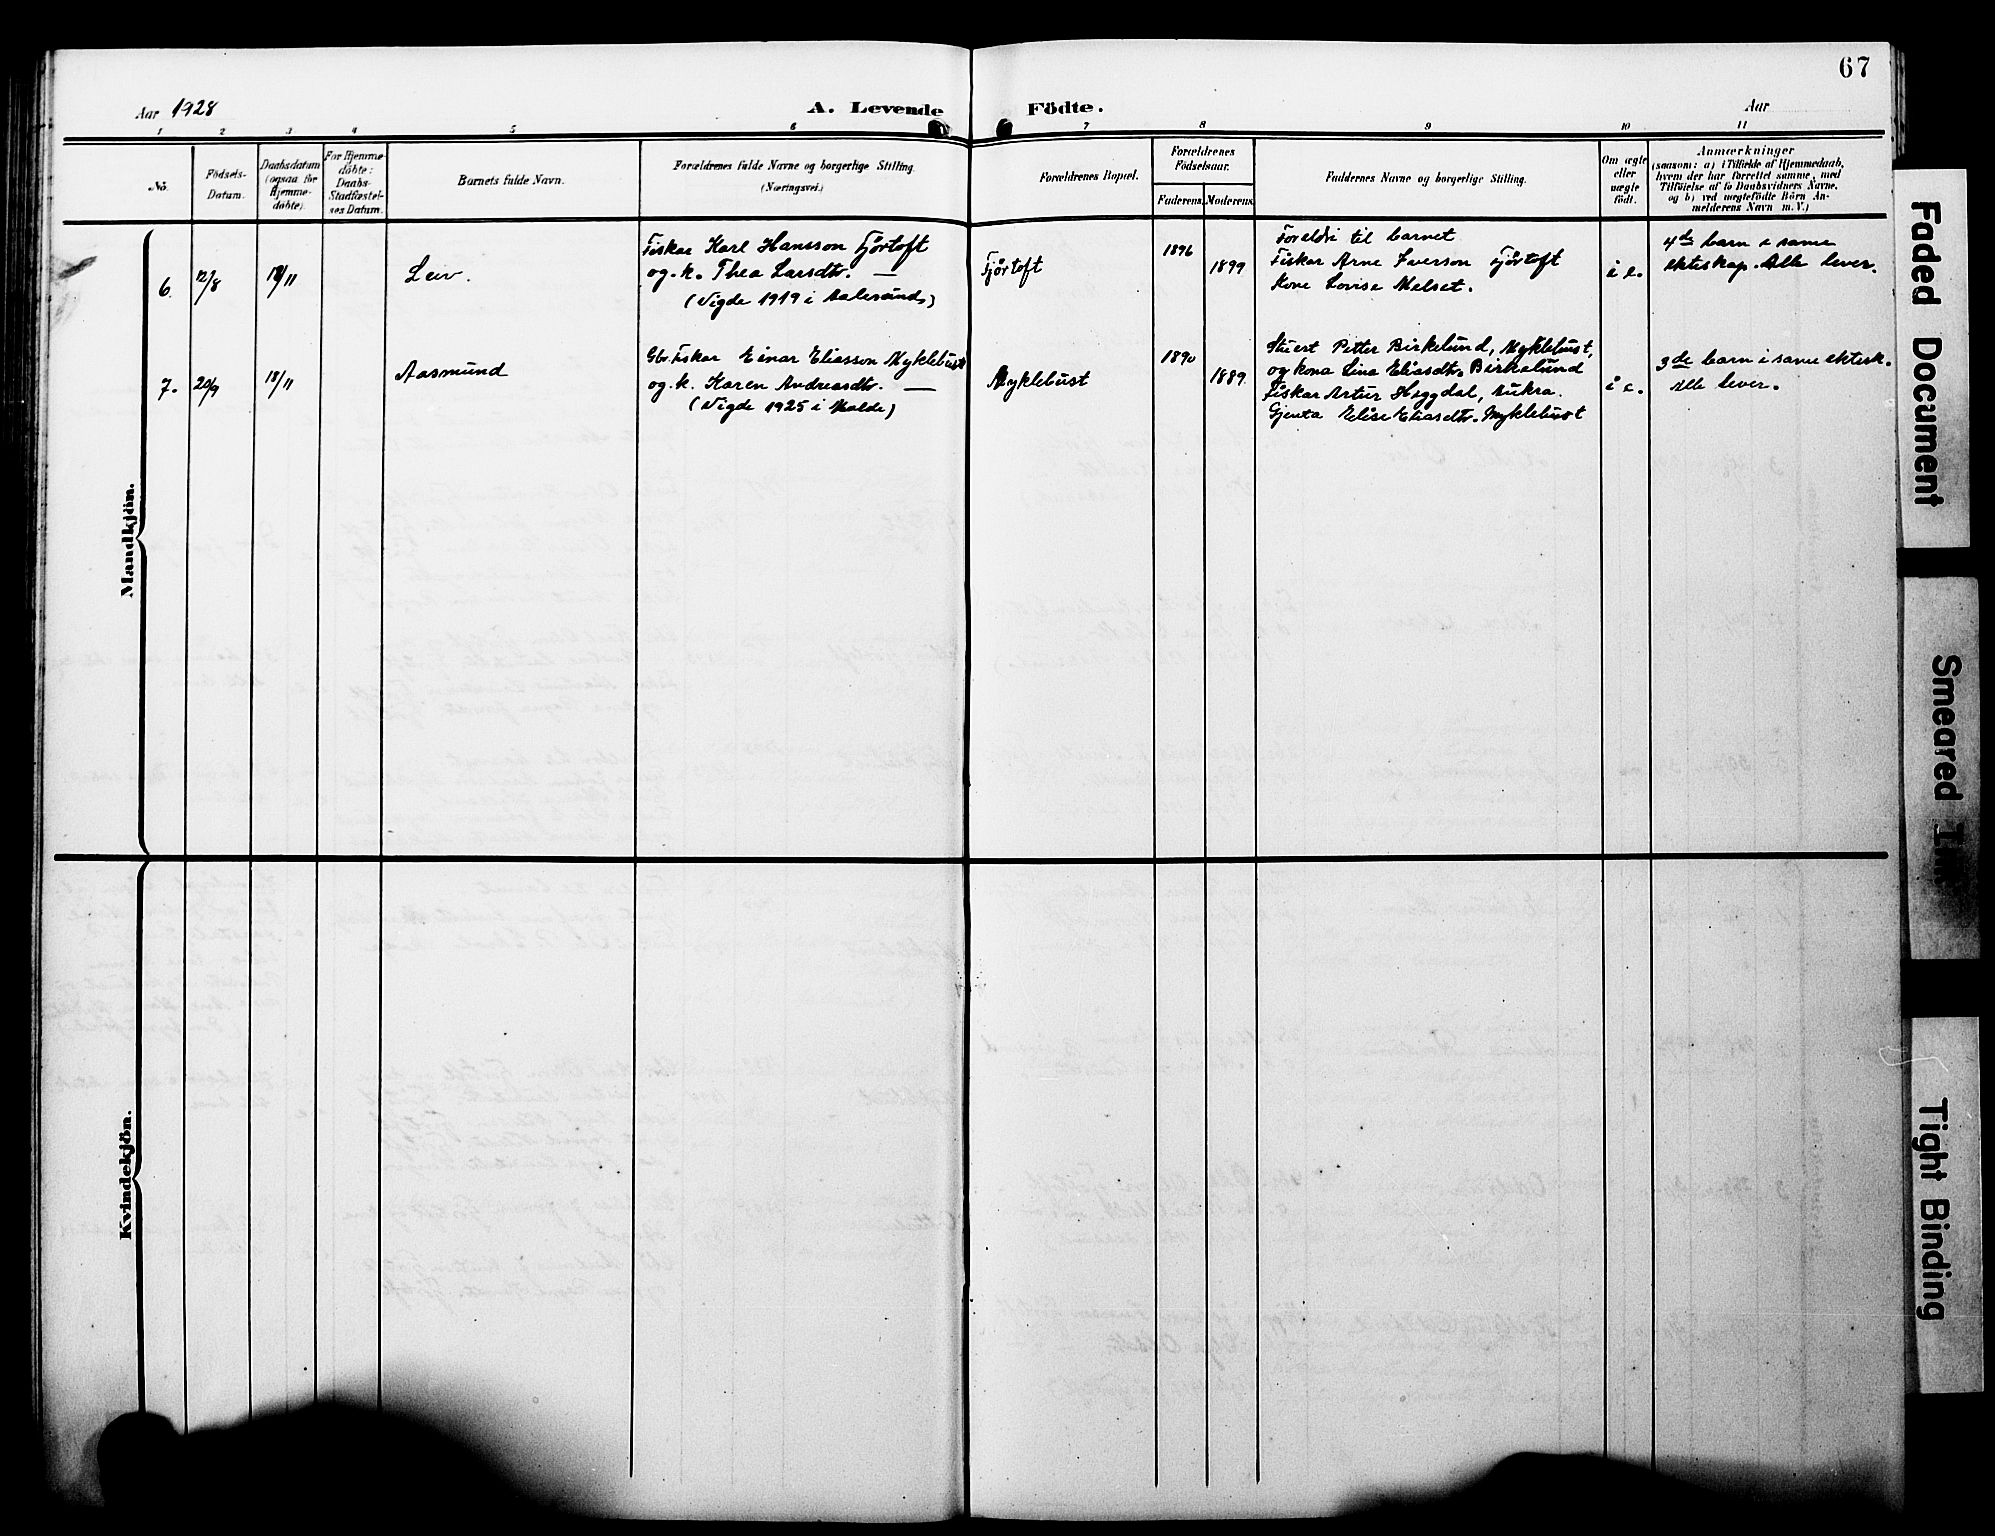 67
Aar 1928
A. Levende Födte.
Aar
1 2 3 4 5 6 7 8 9 10 11
No.
Födsels-
Datum.
Daabsdatum
(ogsaa for
Hjemme-
döbte).
For Hjemme-
döbte:
Daabs-
Stadfæstel-
ses Datum.
Barnets fulde Navn.
Forældrenes fulde Navne og borgerlige Stilling.
(Næringsvei.)
Forældrenes Bopæl.
Forældrenes
Födselsaar.
Faderens. Moderens.
Faddernes Navne og borgerlige Stilling.
Om ægte
eller
uægte
födt.
Anmærkninger
(saasom: a) i Tilfælde af Hjemmedaab,
hvem der har forrettet samme, med
Tilföielse af to Daabsvidners Navne,
og b) ved uægtefödte Börn An-
melderens Navn m. V.)
Mandkjön.
6. 12/8 18/11 Leiv.
Fiskar Karl Hansson Fjörtoft
og k. Thea Larsdtr. —
(Vigde 1919 i Aalesund)
Fjörtoft
1896
1899
Foreldri til barnet
Fiskar Arne Iverson Fjörtoft
Kone Lovise Melset.
i e.
4de barn i same
ekteskap. Alle lever.
7. 20/9 18/11 Aasmund
Gbr. Fiskar Einar Eliasson Myklebust
og k. Karen Andreasdtr. —
(Vigde 1925 i Molde)
Myklebust
1890
1889
Stuert Petter Birkelund, Myklebust,
og kona Lina Eliasdtr. Birkelund
Fiskar Artur Heggdal, Aukra.
Gjenta Elise Eliasdtr. Myklebust
i e.
3de barn i same ektesk.
Alle lever.
Kvindekjön.
Faded Document
Smeared Ink
Tight Binding